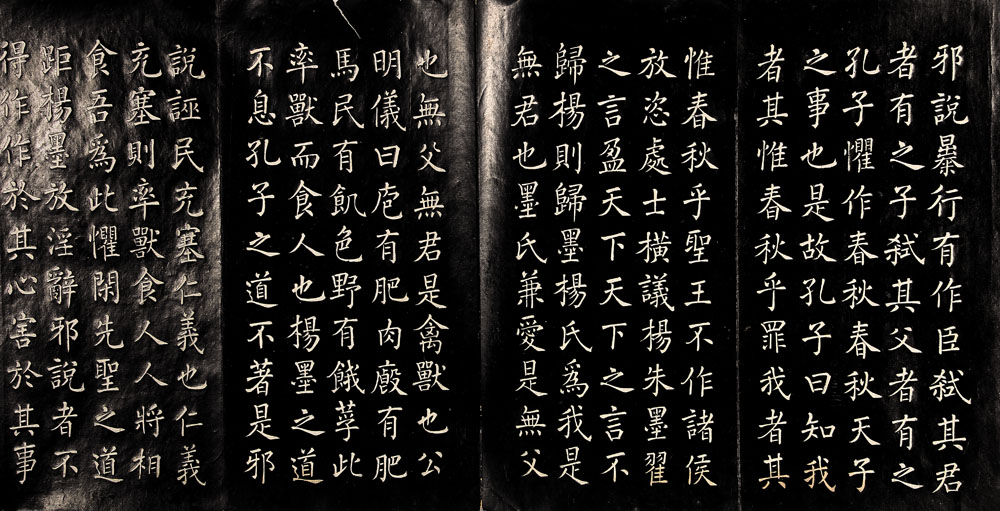 邪說暴行有作臣弒其君
者有之子弒其父者有之
孔子懼作春秋春秋天子
之事也是故孔子曰知我
者其惟春秋乎罪我者其
惟春秋乎聖王不作諸侯
放恣處士橫議楊朱墨翟
之言盈天下天下之言不
歸楊則歸墨楊氏爲我是
無君也墨氏兼愛是無父
也無父無君是禽獸也公
明儀曰庖有肥肉廄有肥
馬民有飢色野有餓莩此
率獸而食人也楊墨之道
不息孔子之道不著是邪
說誣民充塞仁義也仁義
充塞則率獸食人人將相
食吾爲此懼閑先聖之道
距楊墨放淫辭邪說者不
得作作於其心害於其事